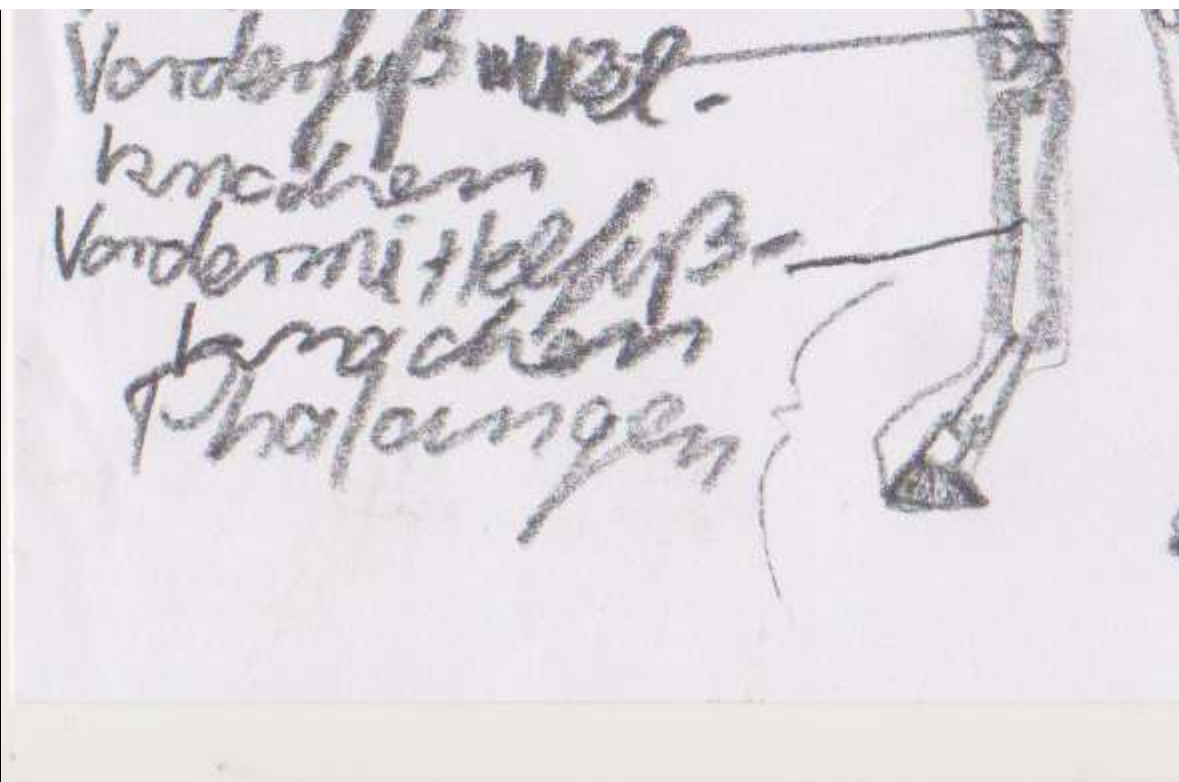 Vorderfußwurzel-
knochen
Vordermittelfuß-
knochen
Phalangen